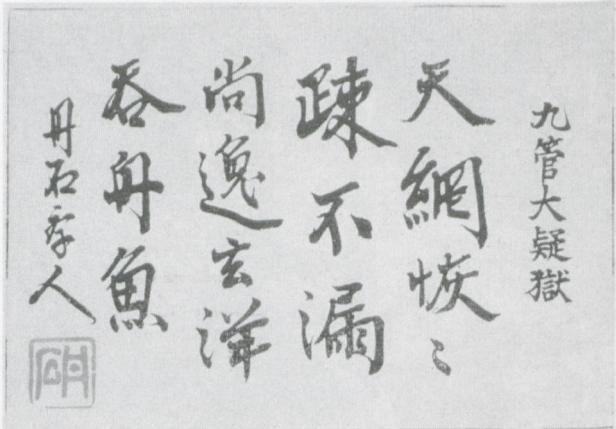 九管大疑獄
天網恢〻
疎不漏
尚逸玄洋
呑舟魚
丹石人